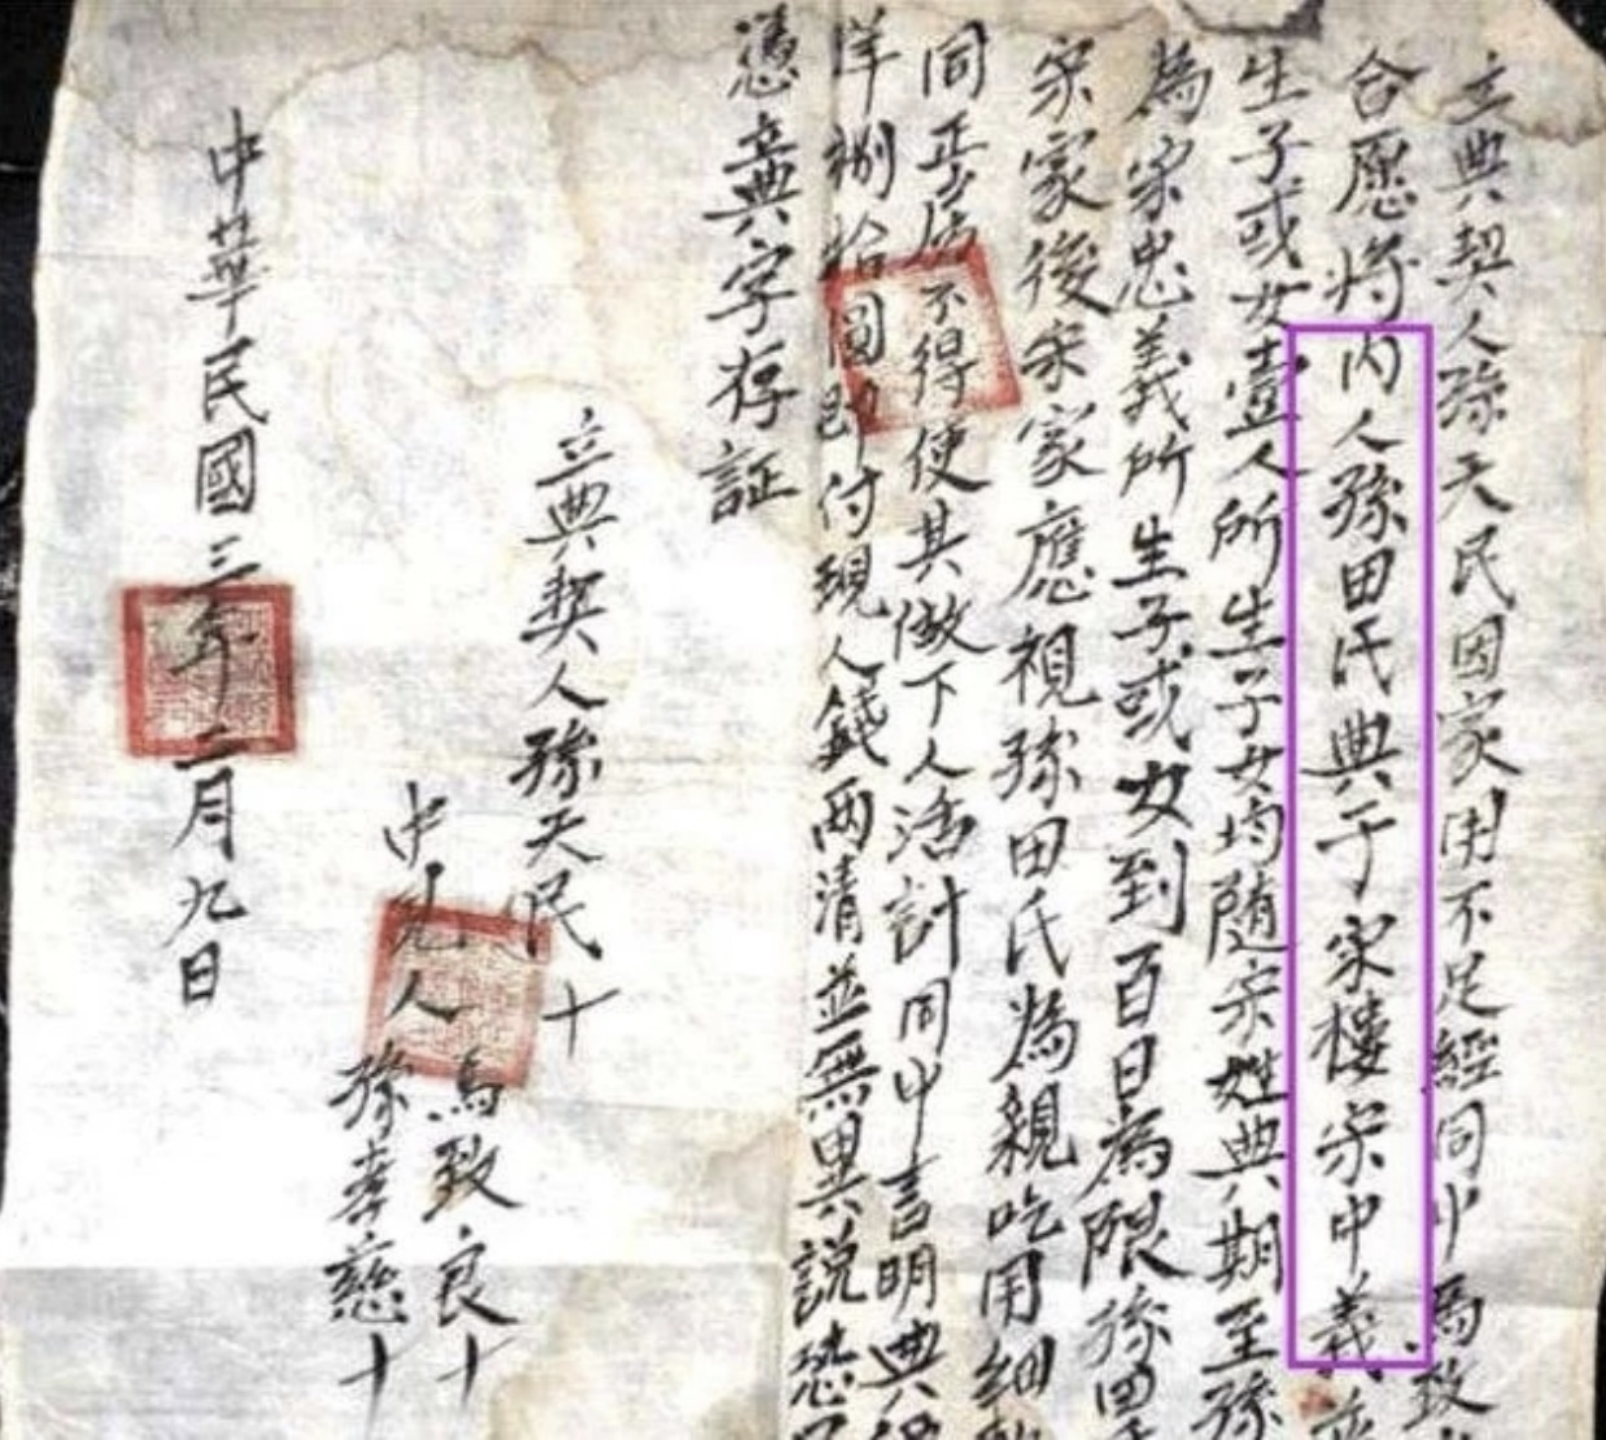 立典契人孫天民因家用不足經同中馬致
合愿将内人孫田氏典于宋樓宗中義
生子或女壹人所生子女均随宗姓典期至孫
為宗忠義所生子或女到百日為限孫田
宗家後宗家應視孫田氏為親吃用細
同正房不得使其做下人活計同中言明典
洋捌拾圓即付現人錢兩清並無異説恐
憑立典字存証
立典契人孫天民十
中見人 馬致良十
孫孝慈十
中華民國三年二月九日